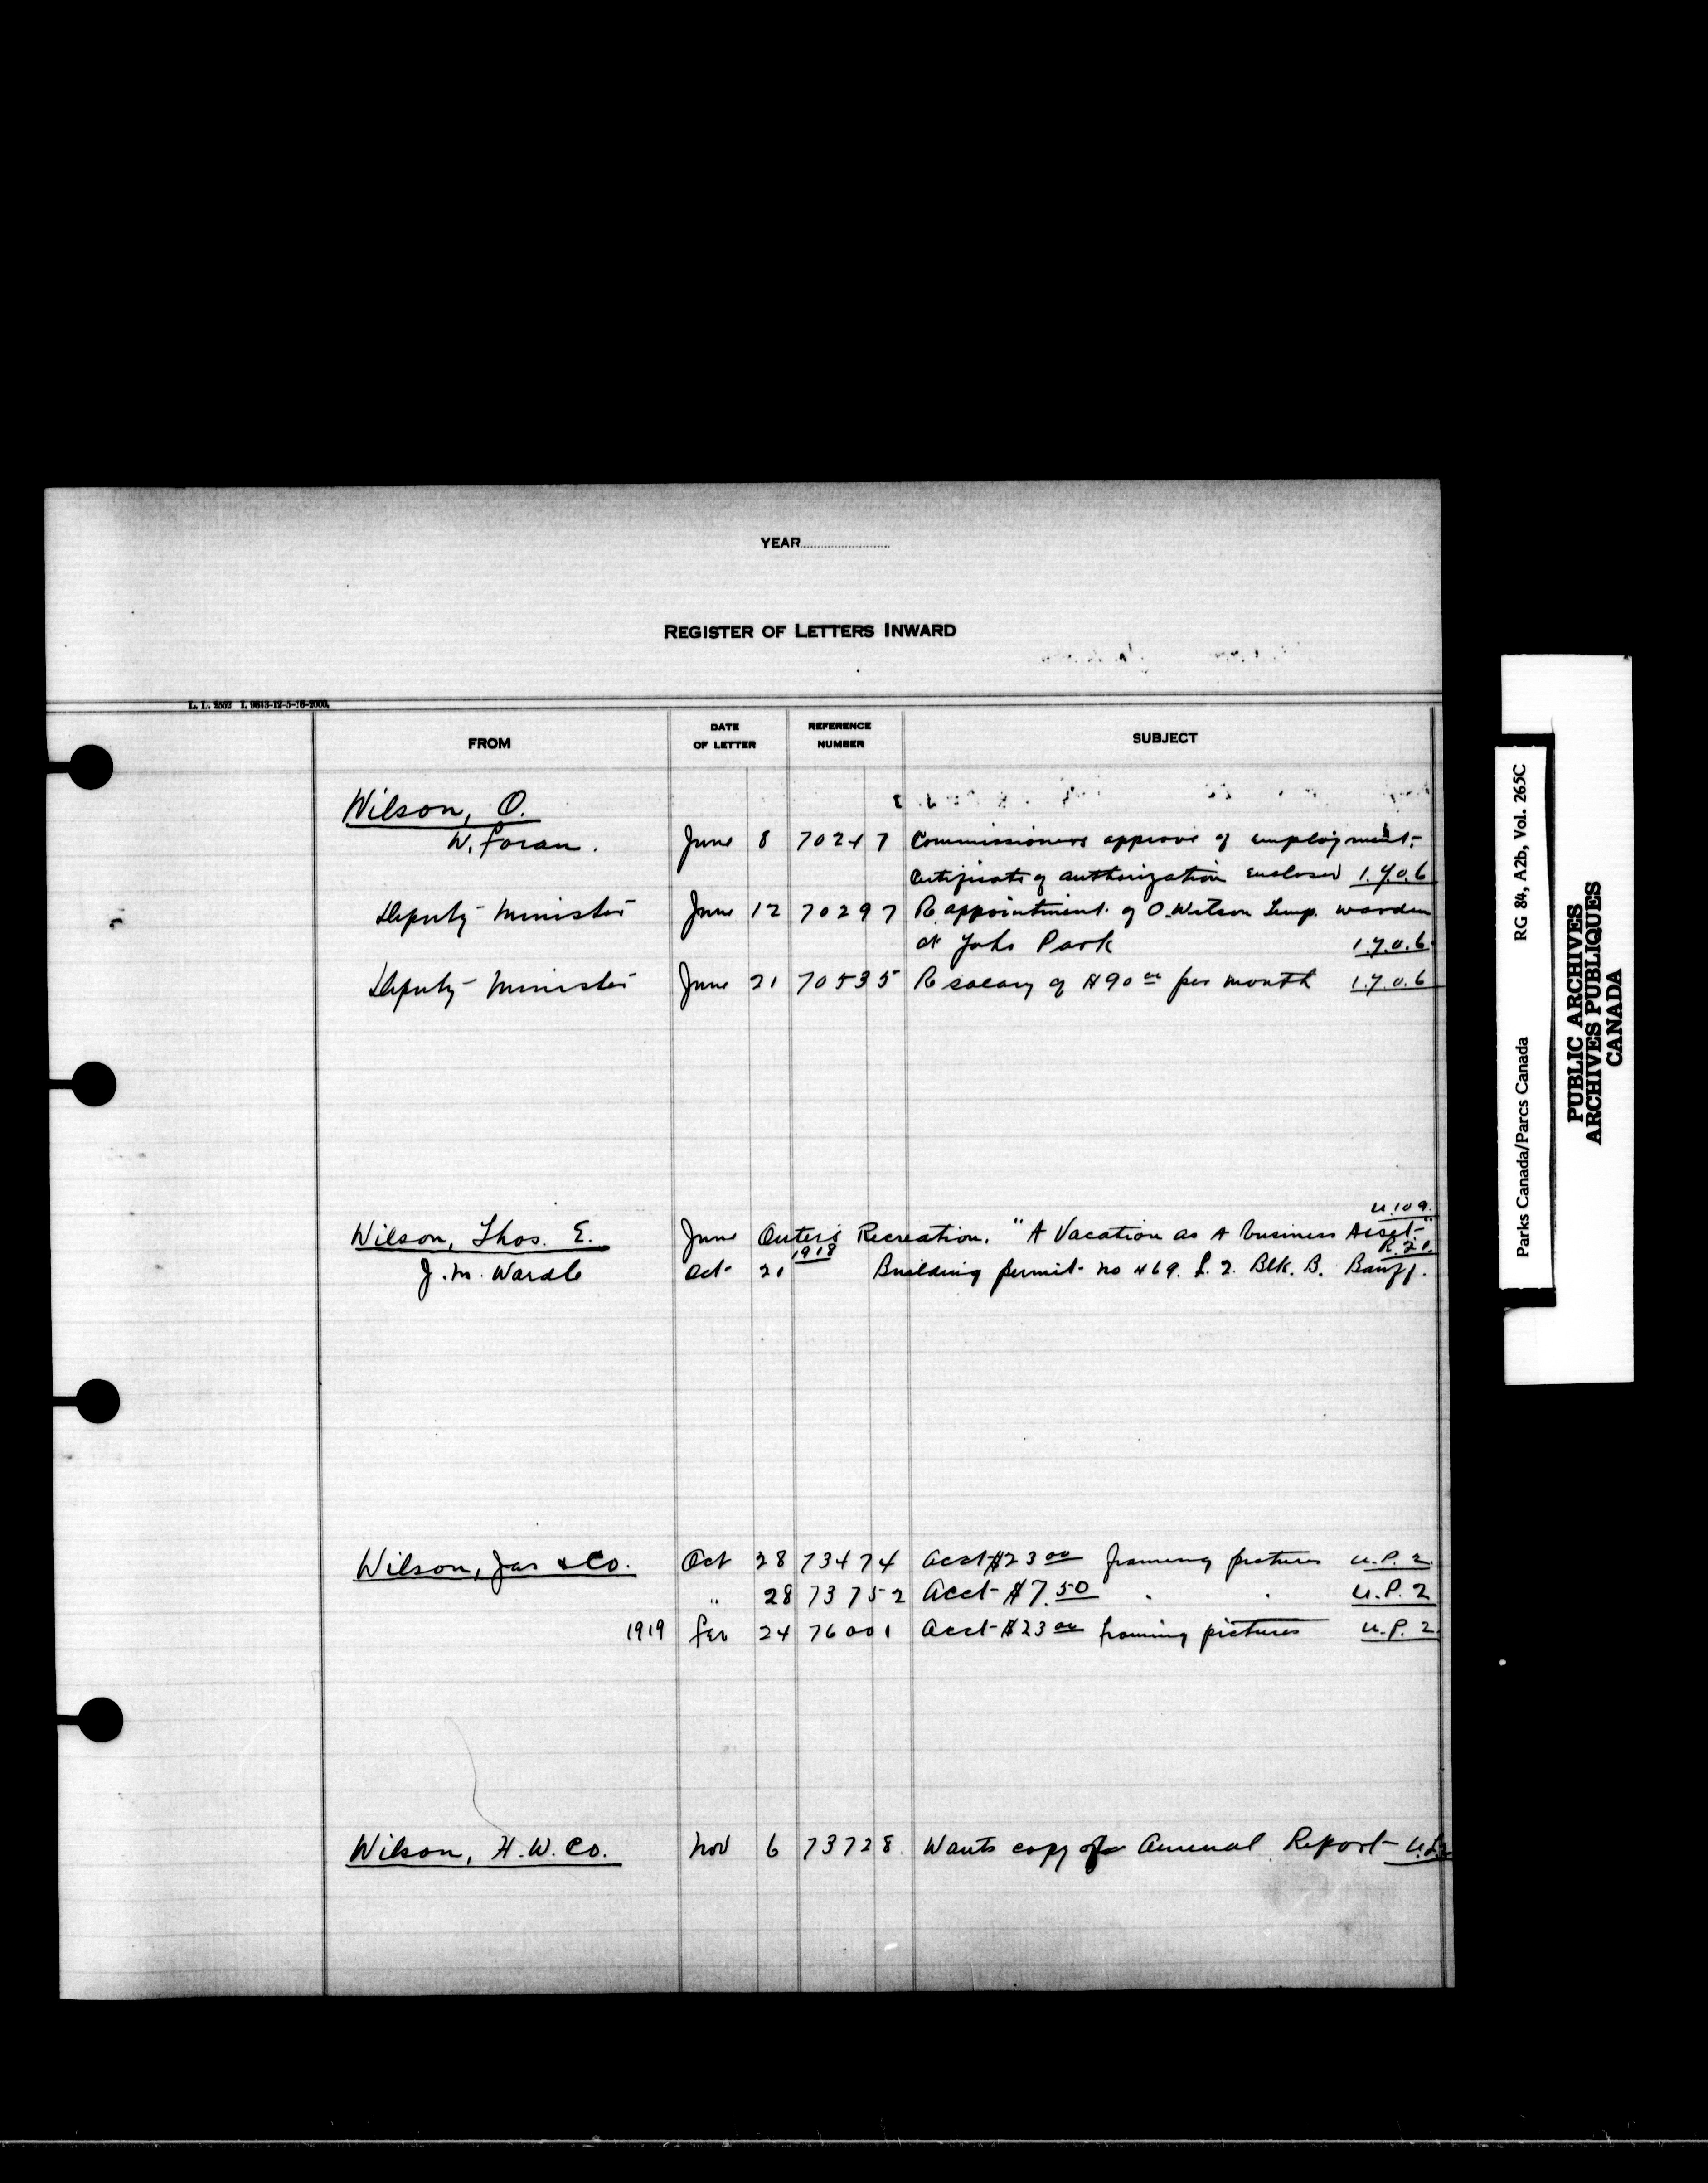 YEAR
REGISTER OF LETTERS INWARD
L. L. 2552 I. 9613-12-5-16-2000.
FROM DATE OF LETTER REFERENCE NUMBER SUBJECT
Wilson, O.
W. Foran. June 8 70247 Commissioners approve of employment.
Certificate of authorization enclosed 1.Y.o.6
Deputy Minister June 12 70297 Re appointment of O. Wilson Temp. warden
at Yoho Park 1.Y.o.6
Deputy Minister June 21 70535 Re salary of $90 00 per month 1.Y.o.6
U.109.
Wilson, Thos. E. June Outer's Recreation. "A Vacation as A Business Asset"
1918 R.21.
J. M. Wardle Oct 21 Building permit no 469. L. 2. Blk. B. Banff.
Wilson, Jas & Co. Oct 28 73474 Acct $23 00 framing pictures U.P. 2
" 28 73752 Acct $7.50 " " U.P. 2
1919 Feb 24 76001 Acct $23 00 framing pictures U.P. 2
Wilson, H. W. Co. Nov 6 73728 Wants copy of Annual Report
RG 84, A2b, Vol. 265C
Parks Canada/Parcs Canada
PUBLIC ARCHIVES
ARCHIVES PUBLIQUES
CANADA